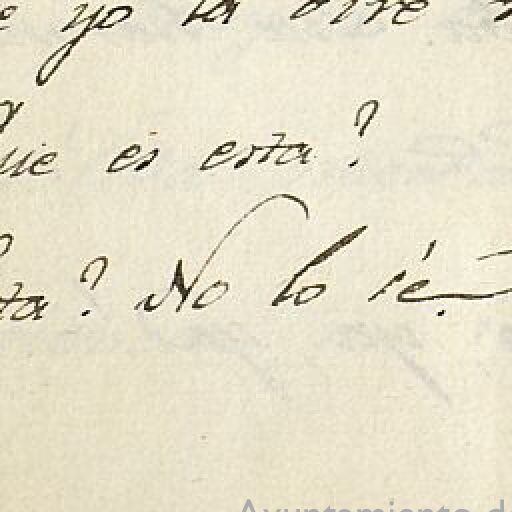 e yo la oire
que es esta?
ta? No lo sé.
Ayuntamiento de